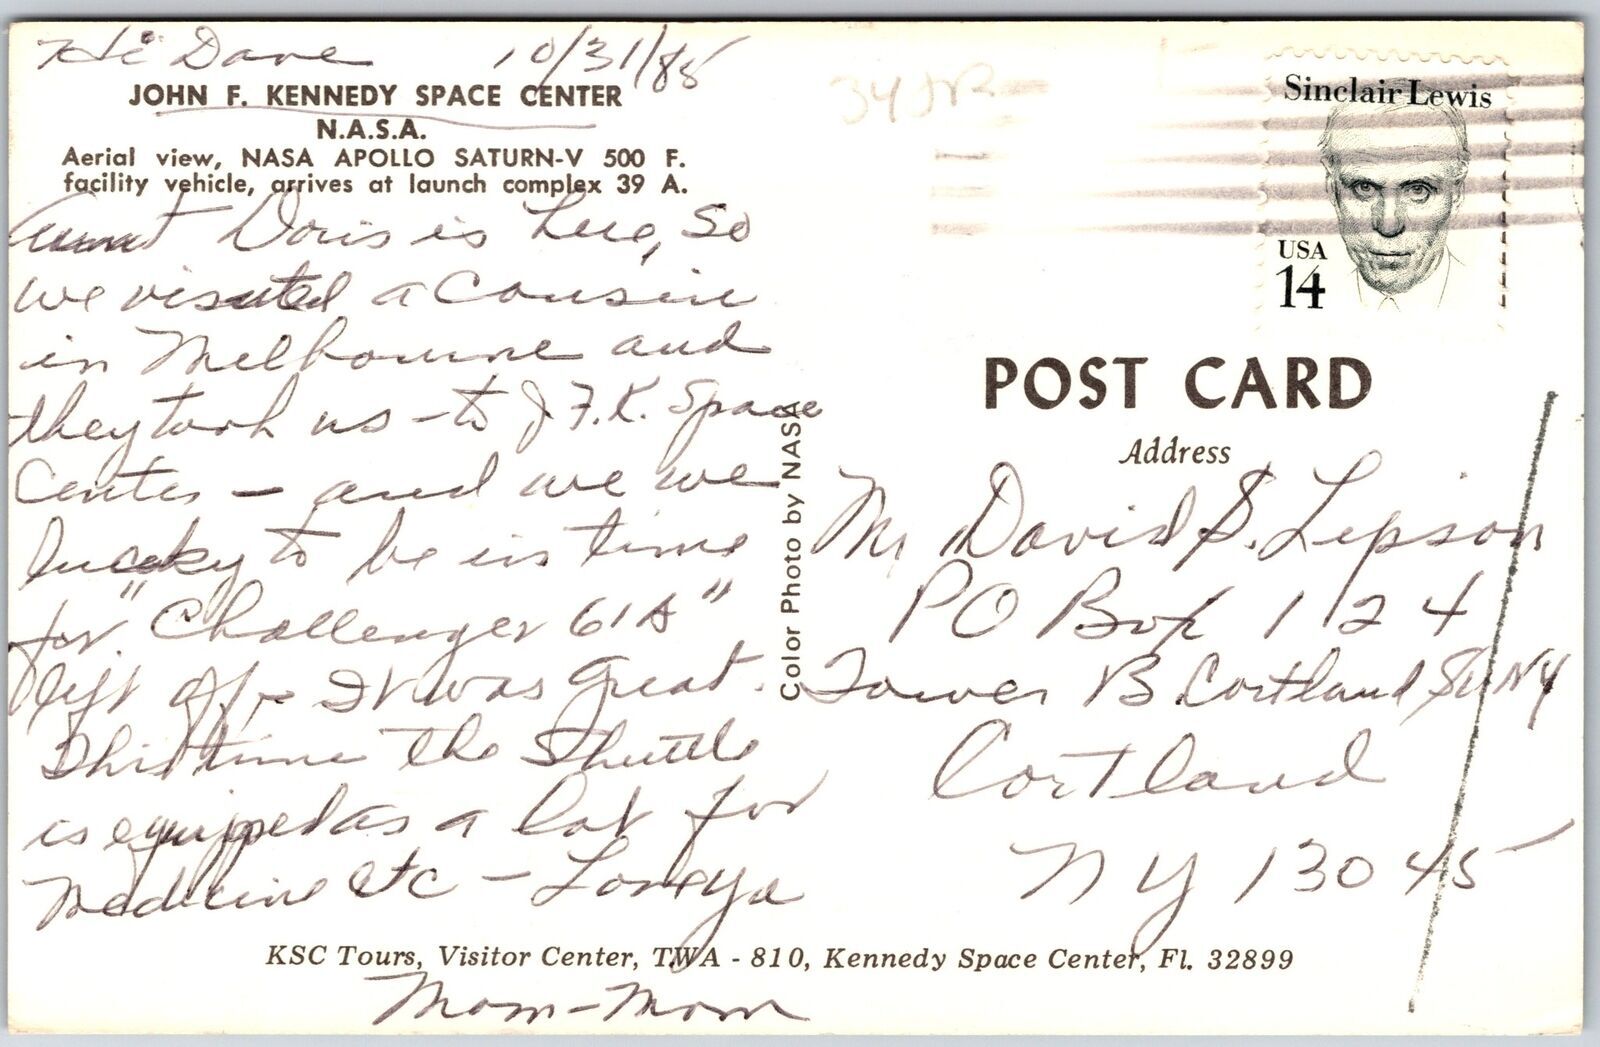 Hi Dave 10/31/85
JOHN F. KENNEDY SPACE CENTER
N.A.S.A.
Aerial view, NASA APOLLO SATURN-V 500 F.
facility vehicle, arrives at launch complex 39 A.
Aunt Doris is here, so
we visited a cousin
in Melbourne and
they took us - to J F.K. Space
Center - and are we
lucky to be in time
for "Challenger 61A"
lift off. It was great.
This time the Shuttle
is equipped as a lab for
Medicine etc - Love ya
Mom-Mom
KSC Tours, Visitor Center, TWA - 810, Kennedy Space Center, Fl. 32899
Color Photo by NASA
Sinclair Lewis
USA
14
POST CARD
Address
Mr David S. Lipson
PO Box 124
Tower B Cortland SUNY
Cortland
NY 13045